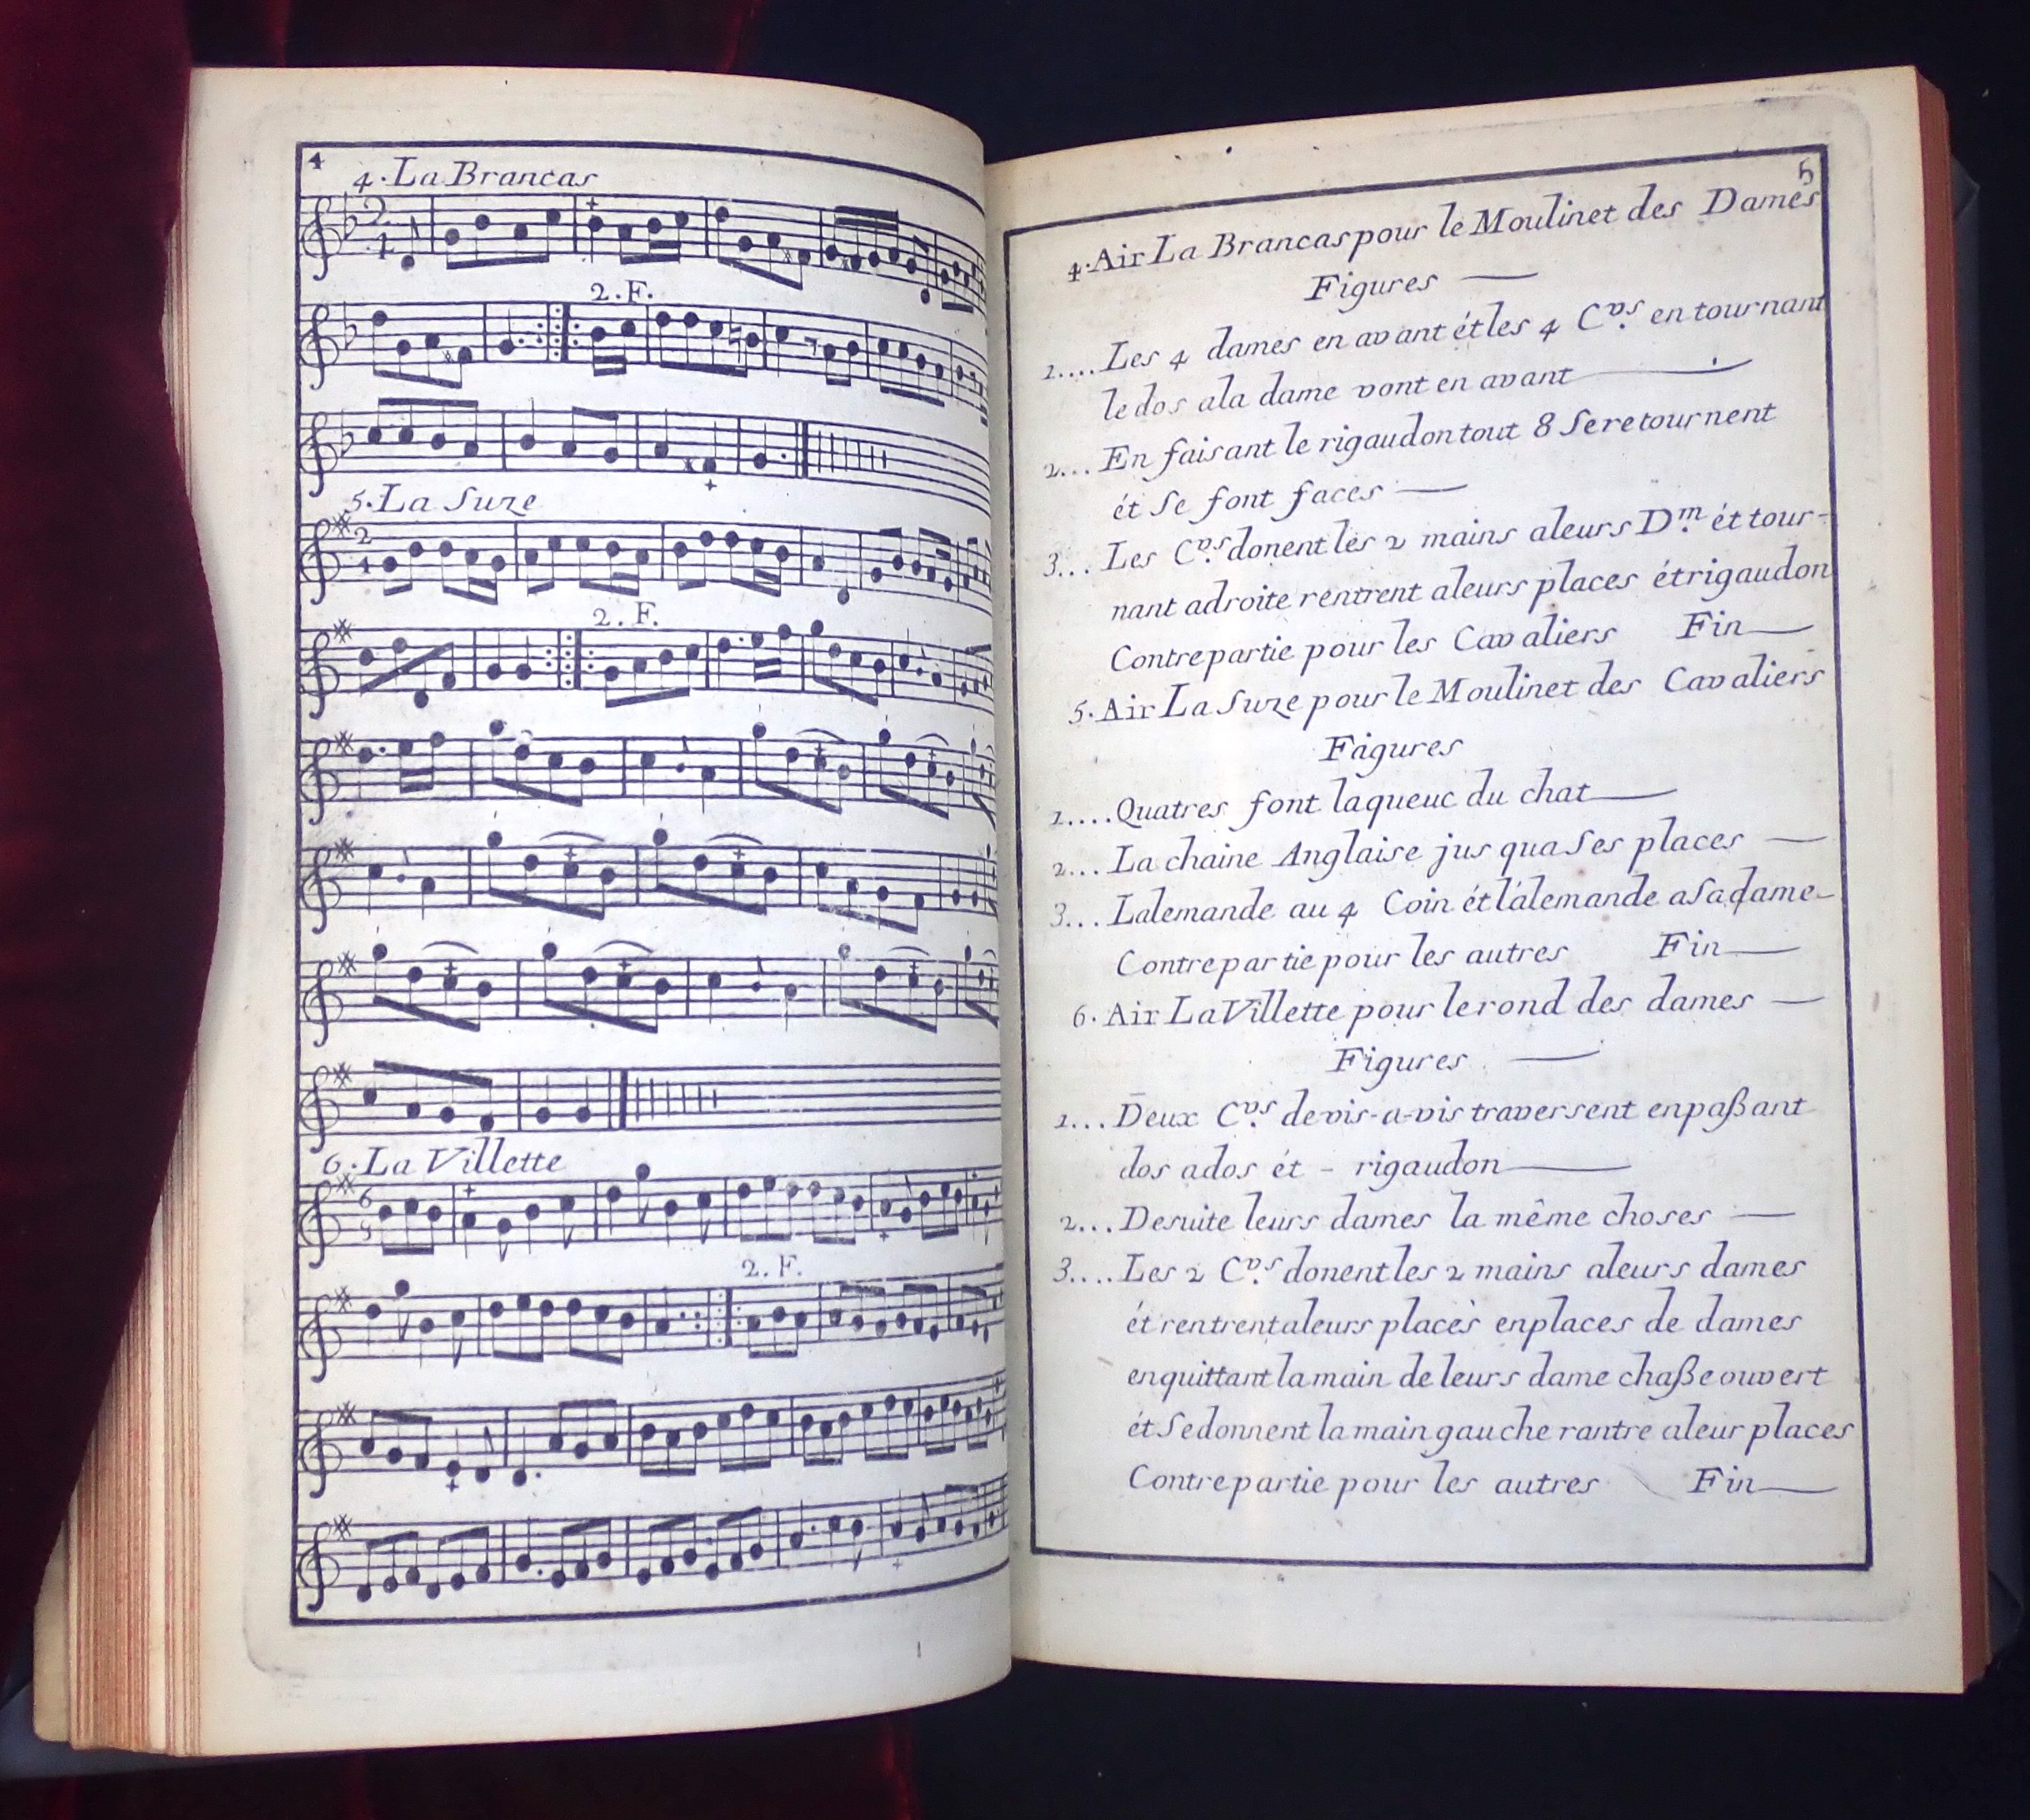 4
4. La Brancas
2
4
2. F.
5. La Suze
2
4
2. F.
6. La Villette
6
8
2. F.
5
4. Air La Brancas pour le Moulinet des Dames
Figures
1.... Les 4 dames en avant ét les 4 Cvs. en tournant
le dos a la dame vont en avant
2... En faisant le rigaudon tout 8 Se retournent
ét Se font faces
3... Les Cvs. donent lés 2 mains a leurs Dm. ét tour-
nant a droite rentrent a leurs places ét rigaudon
Contrepartie pour les Cavaliers Fin
5. Air La Suze pour le Moulinet des Cavaliers
Figures
1.... Quatres font la queue du chat
2... La chaine Anglaise jus qua Ses places
3... Lalemande au 4 Coin ét lálemande a Sa dame
Contrepartie pour les autres Fin
6. Air La Villette pour le rond des dames
Figures
1... Deux Cvs. de vis-a-vis traversent en paßant
dos a dos ét - rigaudon
2... De suite leurs dames la même choses
3.... Les 2 Cvs. donent les 2 mains a leurs dames
ét rentrent a leurs placès en places de dames
en quittant la main de leurs dame chaße ouvert
ét Se donnent la main gauche rantre a leur places
Contrepartie pour les autres Fin